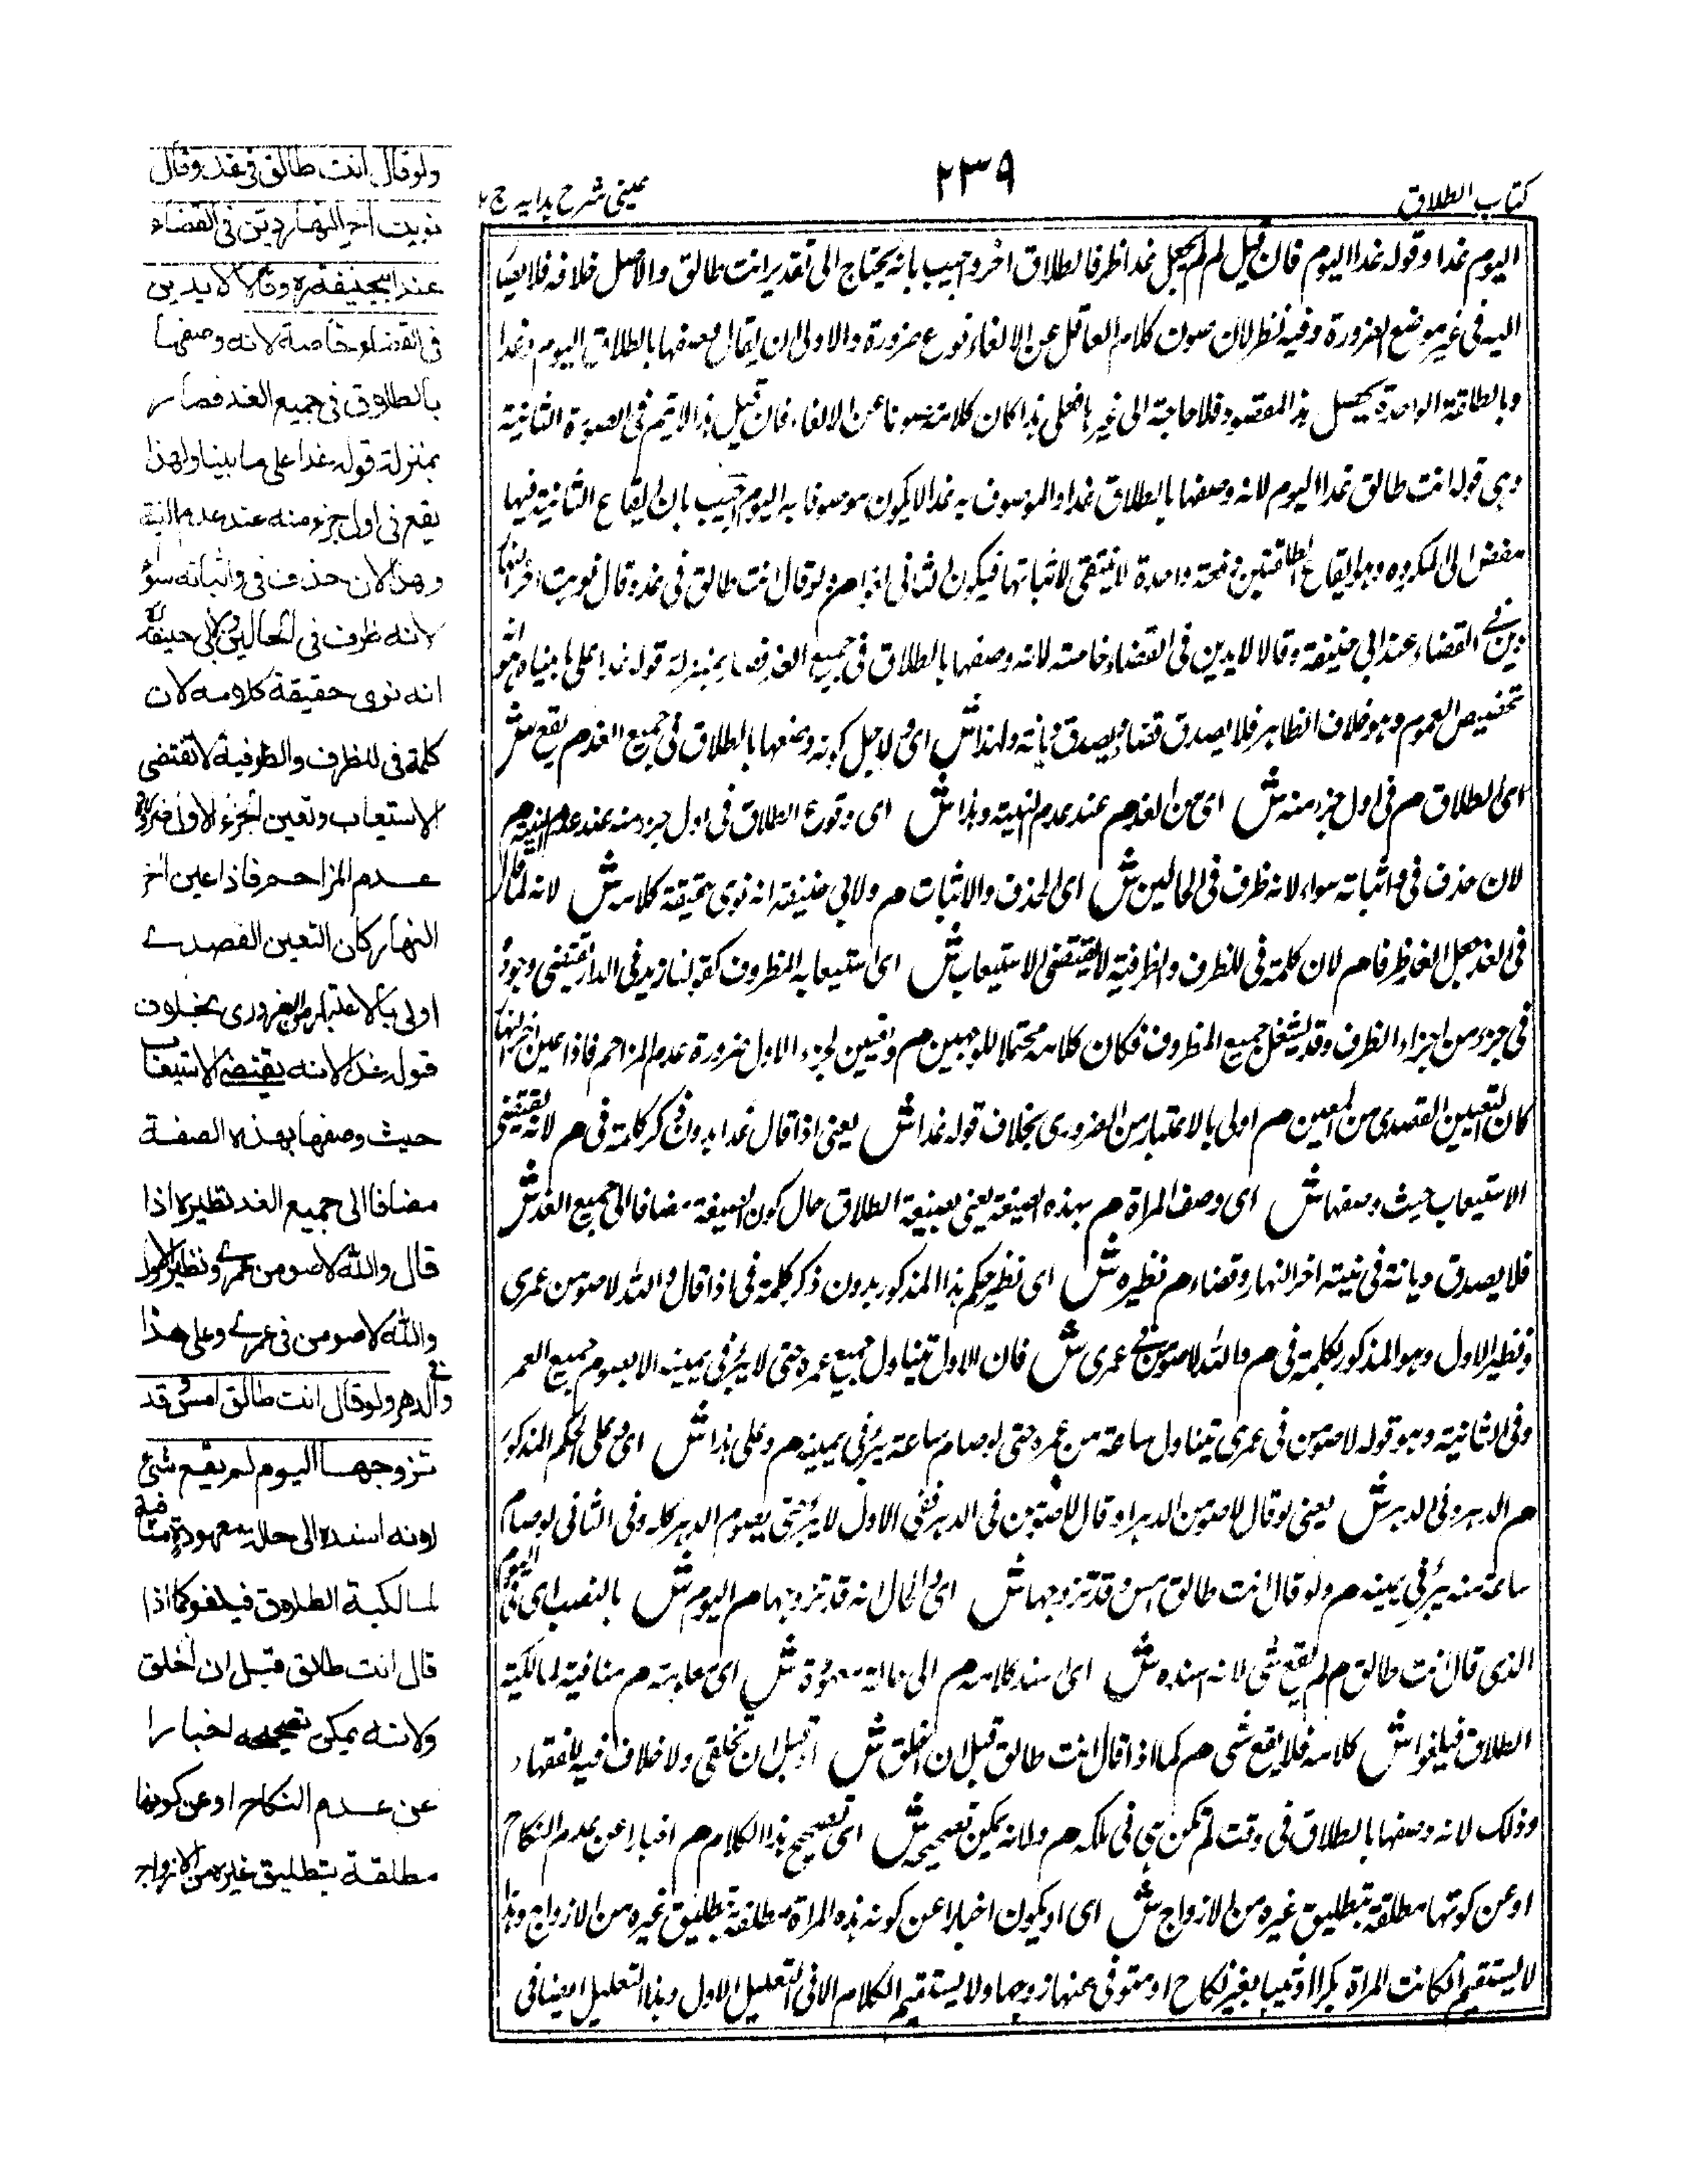 كتاب الطلاق
٢٣٩
عيني شرح هدايه ج ٢
اليوم غدا وقوله غدا اليوم فان قيل لم لم يجعل غدا ظرفا لطلاق اخر واجيب بانه يحتاج الى تقدير انت طالق والاصل خلافه فلا يصار
اليه فى غير موضع الضرورة وفيه نظر لان صون كلام العاقل عن الالغاء نوع ضرورة والاولى ان يقال وصفها بالطلاق اليوم وغدا
وبالطلقة الواحدة يحصل هذا المقصود فلا حاجة الى غيرها فعلى هذا كان كلامه مصونا عن الالغاء فان قيل هذا لا يتم فى الصورة الثانية
وهى قوله انت طالق غدا اليوم لانه وصفها بالطلاق غدا والموصوف به غدا لا يكون موصوفا به اليوم اجيب بان ايقاع الثانية فيها
مفض الى المكروه وهو ايقاع الطلقتين دفعة واحدة لا يبتغى لاثباتها فيكون الثانى لغوا م ولو قال انت طالق فى غد وقال نويت اخر النهار
دين فى القضاء عند ابى حنيفة وقالا لا يدين فى القضاء خاصة لانه وصفها بالطلاق فى جميع الغد فصار بمنزلة قوله غدا على ما بيناه ش هو
تخصيص العموم وهو خلاف الظاهر فلا يصدق قضاء ويصدق ديانة ولهذا ش اى ولاجل كونه وصفها بالطلاق فى جميع الغد م يقع ش
اى الطلاق م فى اول جزء منه ش اى من الغد م عند عدم النية وهذا ش اى وقوع الطلاق فى اول جزء منه عند عدم النية م
لان حذف فى واثباته سواء لانه ظرف فى الحالين ش اى الحذف والاثبات م ولابى حنيفة انه نوى حقيقة كلامه ش لانه لما قال
فى الغد جعل الغد ظرفا م لان كلمة فى للظرف والظرفية لا تقتضى الاستيعاب ش اى استيعابه المظروف كقولنا زيد فى الدار تقتضى وجوده
فى جزء من اجزاء الظرف وقد يشغل جميع المظروف فكان كلامه محتملا للوجهين م وتعين الجزء الاول ضرورة عدم المزاحم فاذا عين اخر النهار
كان التعيين القصدى من المعين م اولى بالاعتبار من الضرورى بخلاف قوله غدا ش يعنى اذا قال غدا بدون ذكر كلمة فى م لانه يقتضى
الاستيعاب حيث وصفها ش اى وصف المراة م بهذه الصيغة يعنى بصيغة الطلاق حال كون الصيغة مضافا الى جميع الغد ش
فلا يصدق ديانة فى نيته اخر النهار وقضاء م نظيره ش اى نظير حكم هذا المذكور بدون ذكر كلمة فى اذا قال والله لاصومن عمرى
ونظير الاول وهو المذكور بكلمة فى م والله لاصومن فى عمرى ش فان الاول يتناول جميع عمره حتى لا يبر فى يمينه الا بصوم جميع العمر
وفى الثانية وهو قوله لاصومن فى عمرى يتناول ساعة من عمره حتى لو صام ساعة يبر فى يمينه م وعلى هذا ش اى وعلى الحكم المذكور
م الدهر وفى الدهر ش يعنى لو قال لاصومن الدهر او قال لاصومن فى الدهر ففى الاول لا يبر حتى يصوم الدهر كله وفى الثانى لو صام
ساعة منه يبر فى يمينه م ولو قال انت طالق امس وقد تزوجها ش اى والحال انه قد تزوجها م اليوم ش بالنصب اى فى اليوم
الذى قال انت طالق م لم يقع شى لانه اسنده ش اى اسند كلامه م الى حالة معهودة ش اى م منافية لمالكية
الطلاق فيلغو ش كلامه فلا يقع شى م كما اذا قال انت طالق قبل ان اخلق ش او قبل ان تخلقى ولا خلاف فيه للفقهاء
وذلك لانه وصفها بالطلاق فى وقت لم تكن هى فى ملكه م ولانه يمكن تصحيحه ش اى تصحيح هذا الكلام م اخبارا عن عدم النكاح
او عن كونها مطلقة بتطليق غيره من الازواج ش اى او يكون اخبارا عن كونه هذه المراة مطلقة بتطليق غيره من الازواج وهذا
لا يستقيم ان كانت المراة بكرا او ثيبا بغير نكاح او متوفى عنها زوجها ولا يستقيم الكلام الا فى التعليل الاول وهذا التعليل ايضا فى
ولو قال انت طالق فى غد وقال
نويت اخر النهار دين فى القضاء
عند ابيحنيفة ره وقالا لا يدين
فى القضاء خاصة لانه وصفها
بالطلاق فى جميع الغد فصار
بمنزلة قوله غدا على ما بينا ولهذا
يقع فى اول جزء منه عند عدم النية
وهذا لان حذف فى واثباته سواء
لانه ظرف فى الحالين ولابى حنيفة
انه نوى حقيقة كلامه لان
كلمة فى للظرف والظرفية لا تقتضى
الاستيعاب وتعين الجزء الاول ضرورة
عدم المزاحم فاذا عين اخر
النهار كان التعين القصدے
اولى بالاعتبار من الضرورى بخلاف
قوله غدا لانه يقتضى الاستيعاب
حيث وصفها بهذه الصفة
مضافا الى جميع الغد نظيره اذا
قال والله لاصومن عمرے ونظير الاول
والله لاصومن فى عمرے وعلى هذا
الدهر وفى الدهر ولو قال انت طالق امس وقد
تزوجها اليوم لم يقع شئ
لانه اسنده الى حالة معهودة منافية
لمالكية الطلاق فيلغو كما اذا
قال انت طالق قبل ان اخلق
ولانه يمكن تصحيحه اخبارا
عن عدم النكاح او عن كونها
مطلقة بتطليق غيره من الازواج